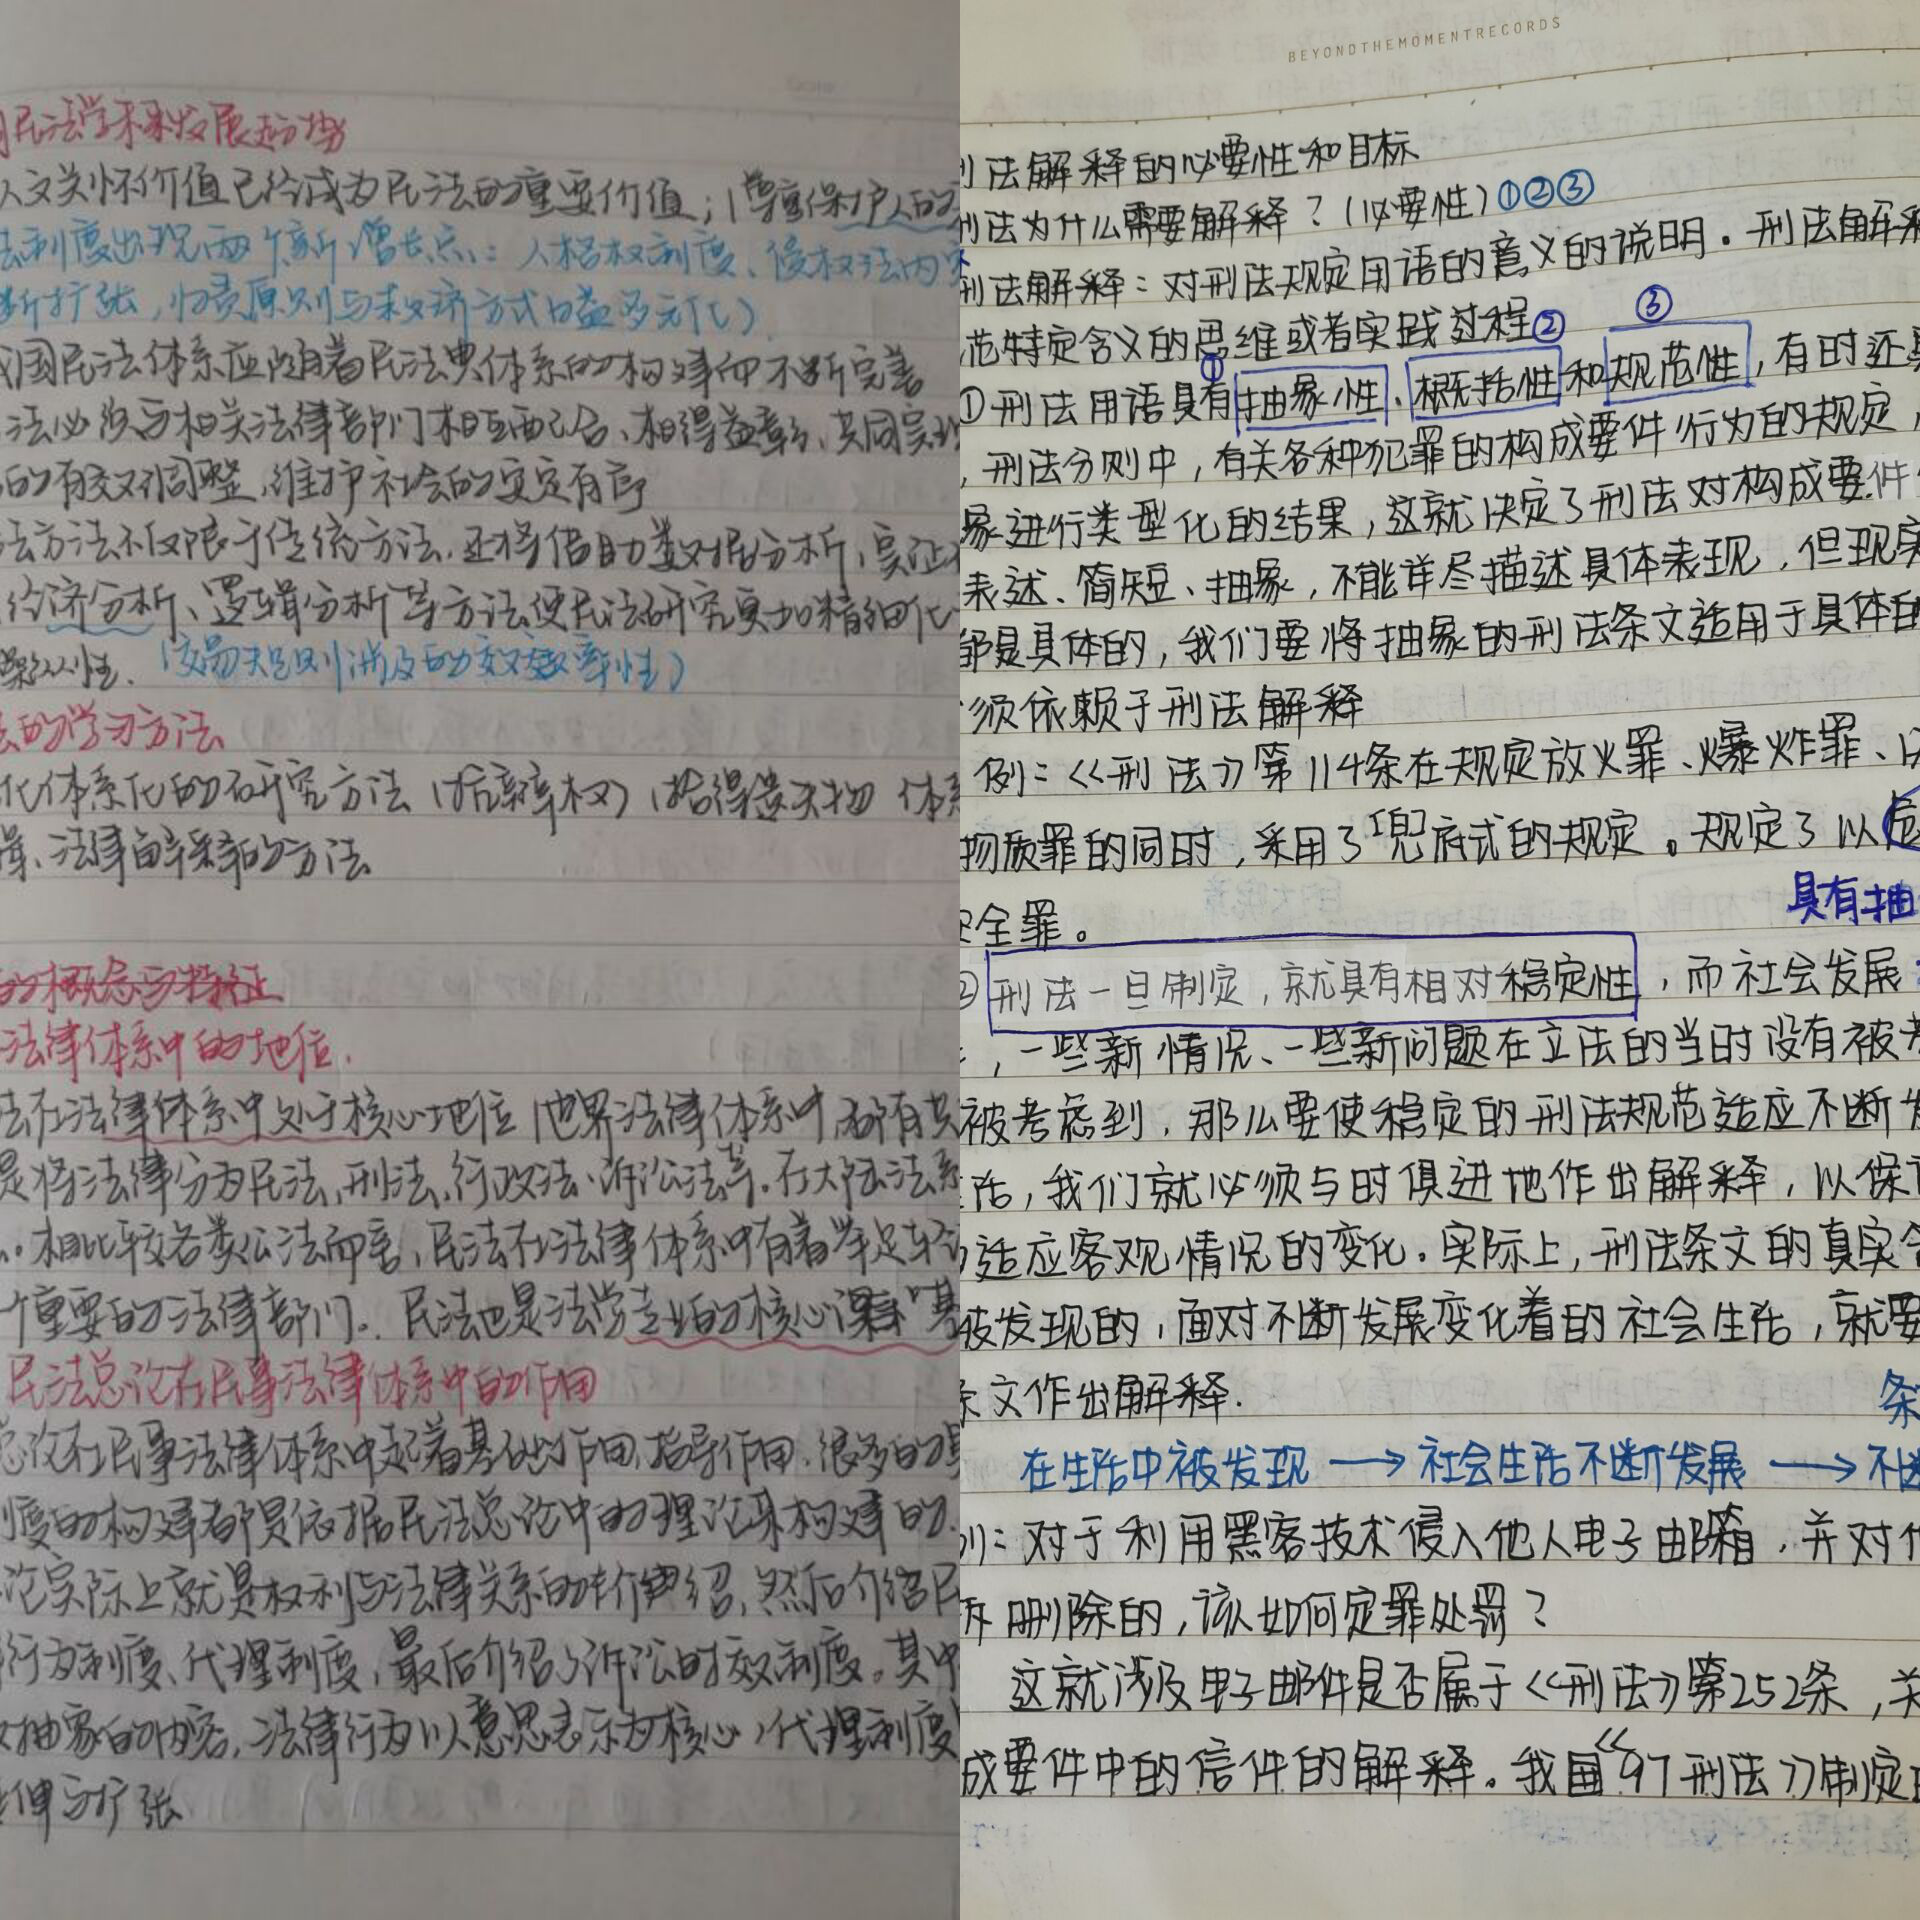 民法学科发展趋势
人文关怀价值已经成为民法的重要价值；（尊重保护人的
法制度出现两个新增长点：人格权制度、侵权法内
断扩张，归责原则与救济方式日益多元化）
我国民法体系应随着民法典体系的构建而不断完善
法必须与相关法律部门相互配合、相得益彰、共同实现
的有效调整，维护社会的安定有序
法方法不仅限于传统方法，还将借助数据分析，实证
经济分析、逻辑分析等方法使民法研究更加精细化
（交易规则涉及的效率性）
法的学习方法
化体系化的研究方法（拾得遗失物 体系
法律解释的方法
的概念与特征
法律体系中的地位.
法在法律体系中处于核心地位（世界法律体系中，都有其
是将法律分为民法、刑法、行政法、诉讼法等。在大陆法系
相比较各类公法而言，民法在法律体系中有着举足轻
个重要的法律部门。民法也是法学专业的核心课
民法总论在民事法律体系中的作用
总论在民事法律体系中起着基础作用，指导作用，很多的
制度的构建都是依据民法总论中的理论来构建的.
论实际上就是权利与法律关系的介绍，然后介绍民
行为制度、代理制度，最后介绍了诉讼时效制度。其中
抽象的内容，法律行为以意思表示为核心，代理制度
延伸与扩张
BEYONDTHEMOMENTRECORDS
刑法解释的必要性和目标
刑法为什么需要解释？（必要性）①②③
刑法解释：对刑法规定用语的意义的说明。刑法解释
范特定含义的思维或者实践过程
① ② ③
①刑法用语具有抽象性、概括性和规范性，有时还具
，刑法分则中，有关各种犯罪的构成要件行为的规定，
象进行类型化的结果，这就决定了刑法对构成要件
表述、简短、抽象，不能详尽描述具体表现，但现实
都是具体的，我们要将抽象的刑法条文适用于具体的
须依赖于刑法解释
例：《刑法》第114条在规定放火罪、爆炸罪、
物质罪的同时，采用了兜底式的规定。规定了以危
具有抽
安全罪。
②刑法一旦制定，就具有相对稳定性，而社会发展
，一些新情况、一些新问题在立法的当时没有被考
被考虑到，那么要使稳定的刑法规范适应不断发
活，我们就必须与时俱进地作出解释，以保证
适应客观情况的变化。实际上，刑法条文的真实含
被发现的，面对不断发展变化着的社会生活，就要
条文作出解释.
条
在生活中被发现→社会生活不断发展→不断
例：对于利用黑客技术侵入他人电子邮箱，并对他
删除的，该如何定罪处罚？
这就涉及电子邮件是否属于《刑法》第252条，关
成要件中的信件的解释。我国《97刑法》制定